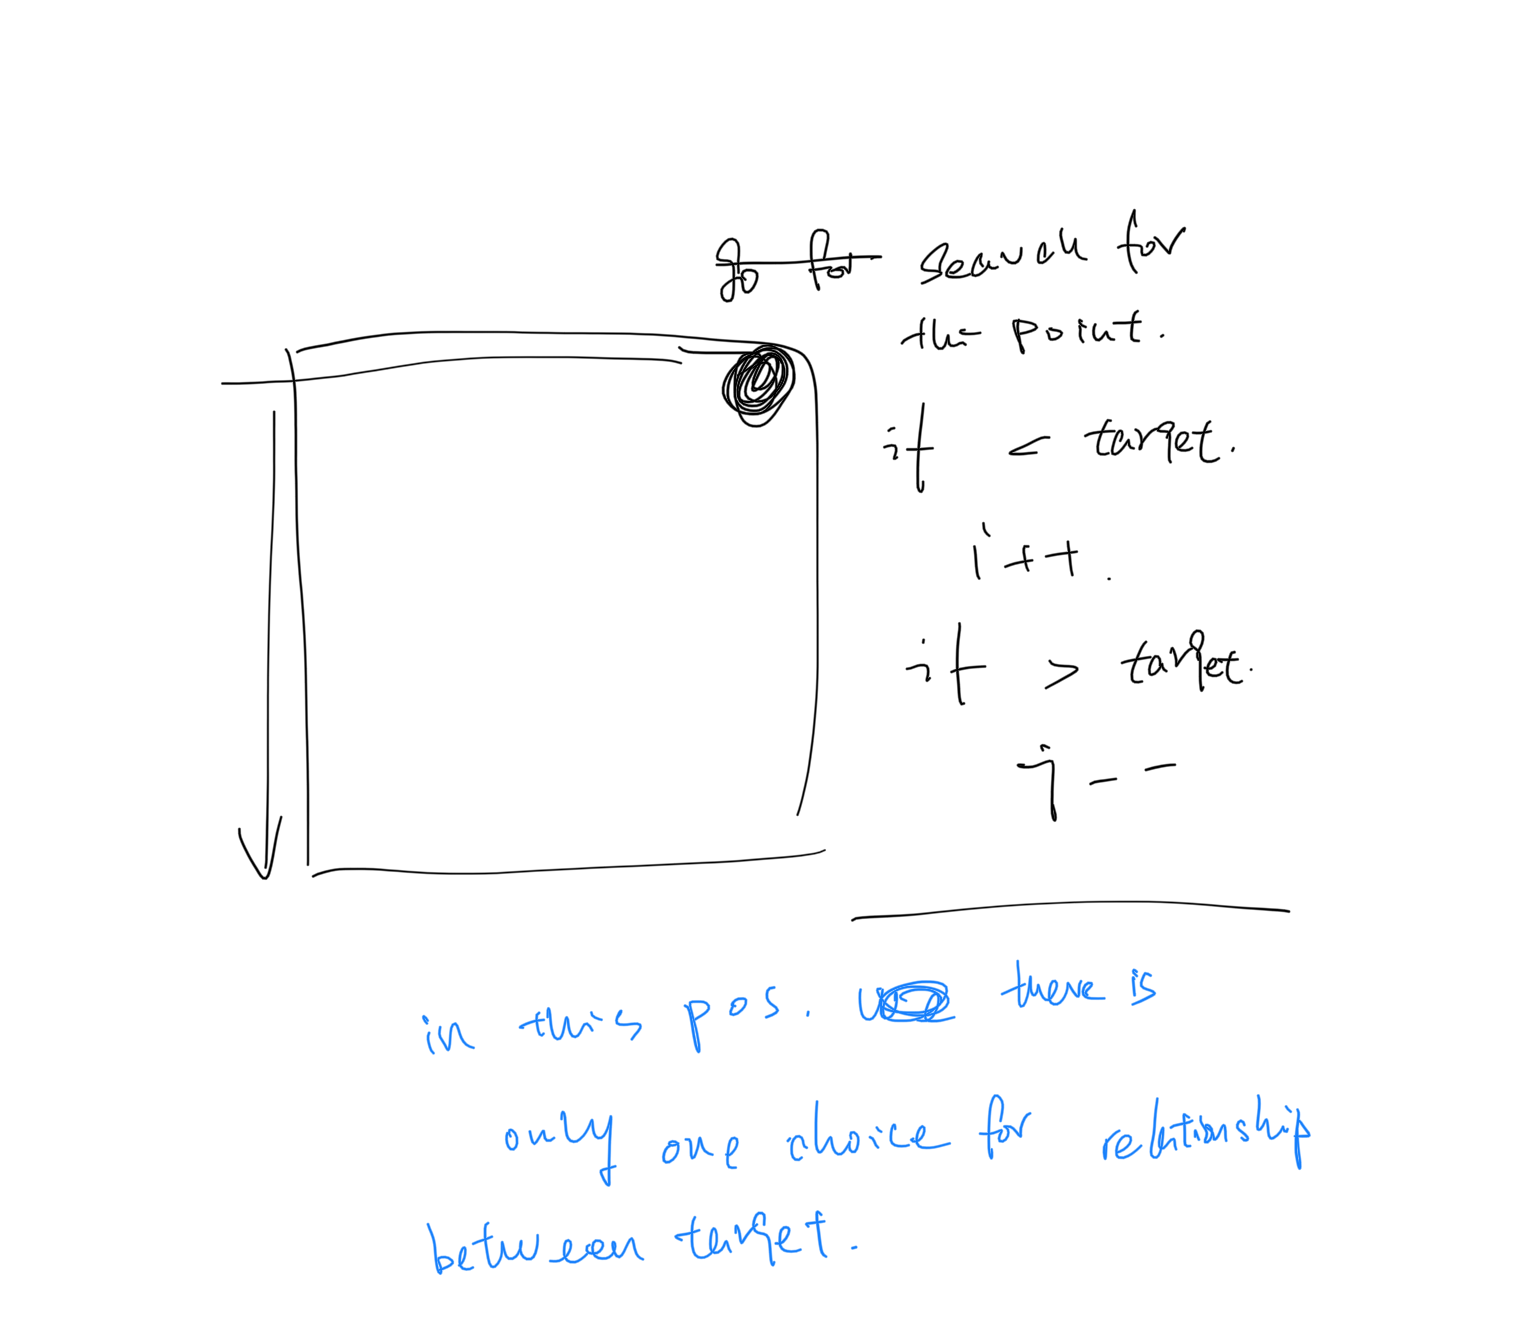 go for search for
the point.
if < target.
i++.
if > target.
j--
in this pos. there is
only one choice for relationship
between target.